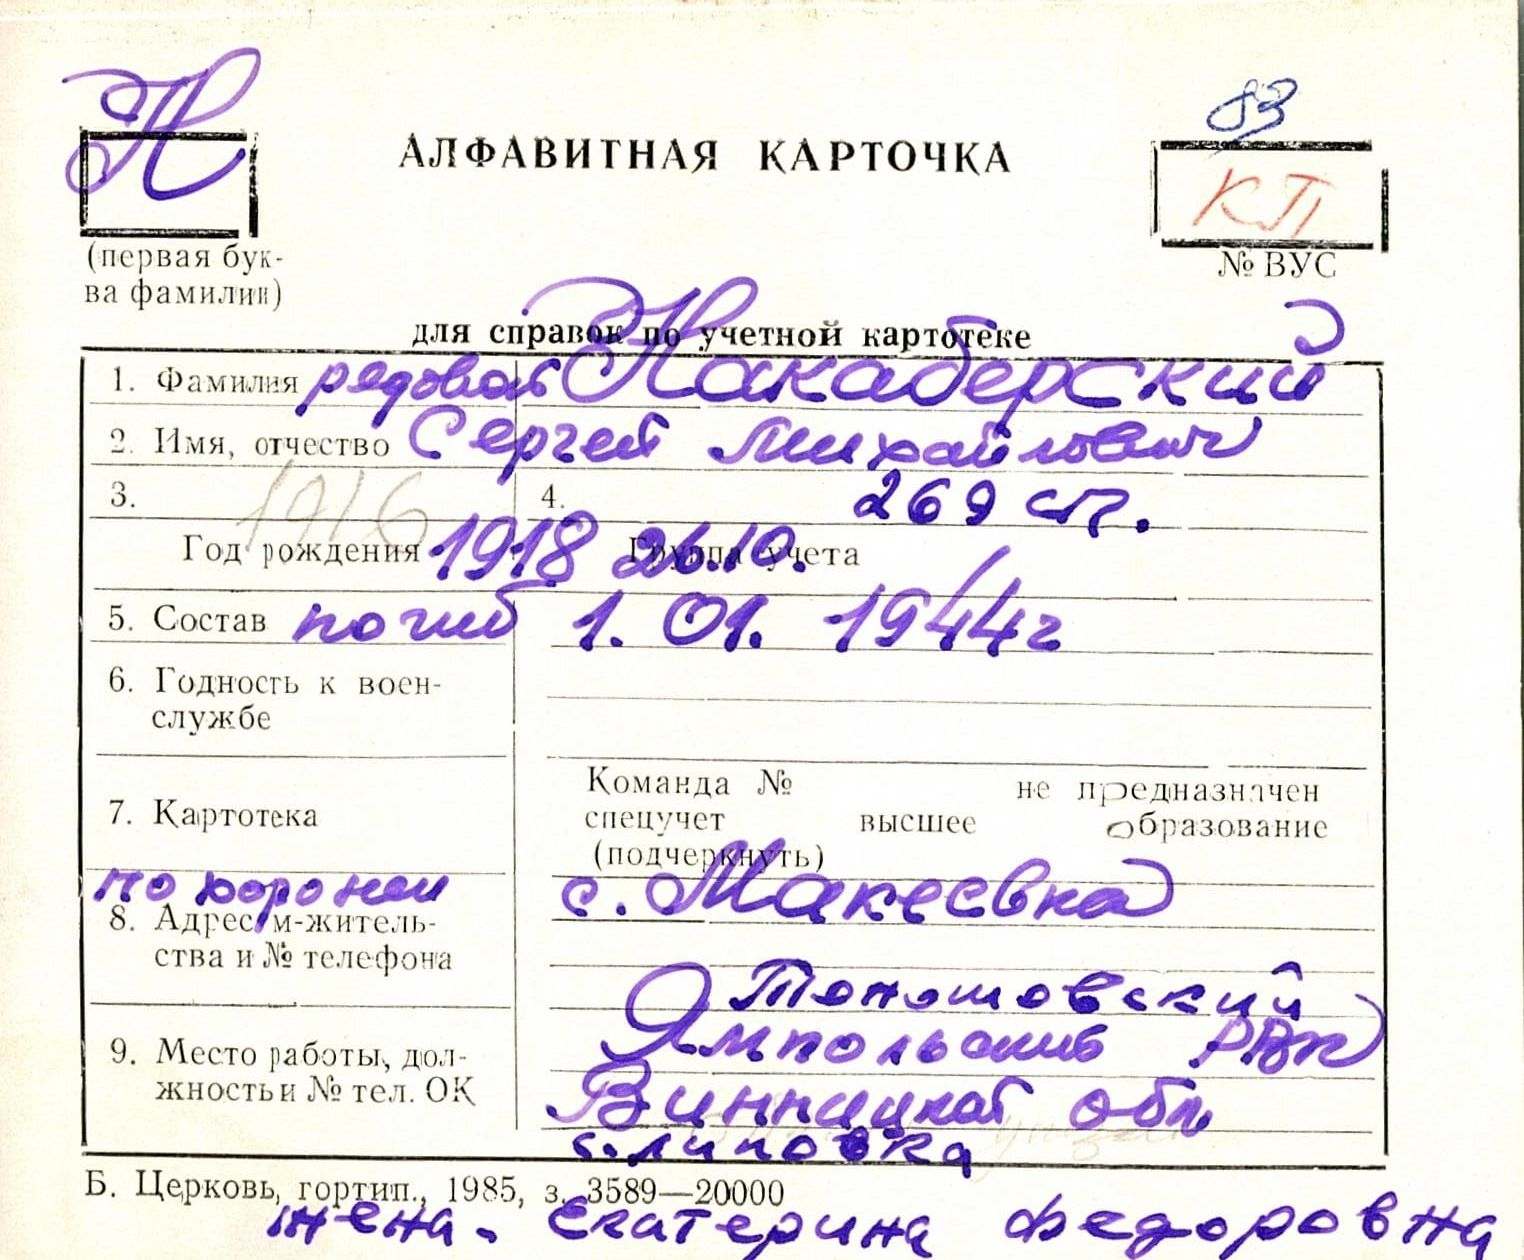 Н
83
АЛФАВИТНАЯ КАРТОЧКА
КП
(первая бук-
ва фамилии)
№ ВУС
для справок по учетной картотеке
1. Фамилия рядовой Накаберский
2. Имя, отчество Сергей Михайлович
3. 1916 4. 269 сп.
Год рождения 1918 26.10. Группа учета
5. Состав погиб 1.01.1944г
6. Годность к воен-
службе
Команда № не предназначен
7. Картотека спецучет высшее образование
(подчеркнуть)
похоронен с. Макеевка
8. Адрес м-житель-
ства и № телефона
Ямпольский РВК
9. Место работы, дол-
жность и № тел. ОК
Винницкой обл
с. Липовка
Б. Церковь, гортип., 1985, з. 3589—20000
жена. Екатерина Федоровна